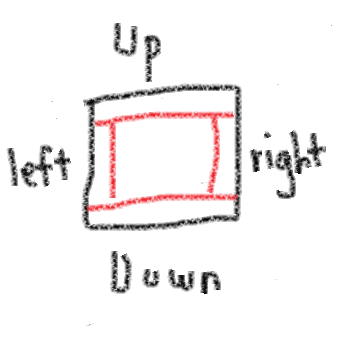 Up
left
right
Down